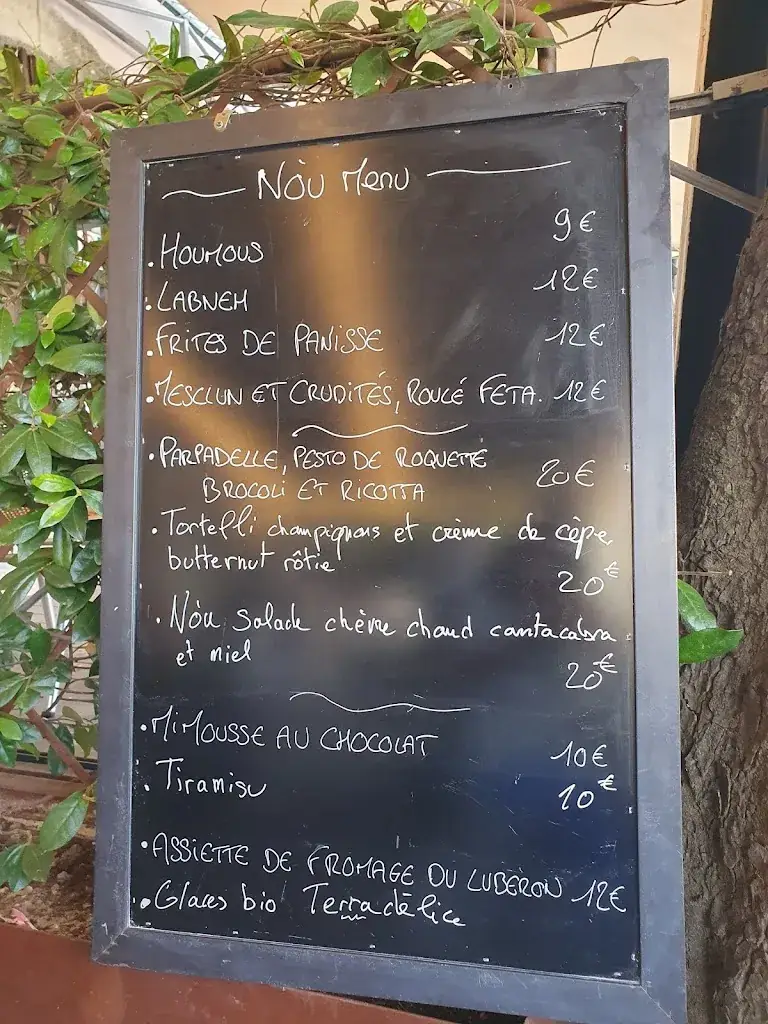 Nòu Menu
9€
. Houmous
12€
. Labneh
. Frites de Panisse 12€
. Mesclun et Crudités, Roulé Feta. 12€
. Parpadelle, Pesto de Roquette
Brocoli et Ricotta 20€
. Tortelli champignons et crème de cèpe,
butternut rôtie
20€
. Nòu salade chèvre chaud
et miel
20€
. Mimousse au Chocolat 10€
. Tiramisu 10€
. Assiette de Fromage du Luberon 12€
. Glaces bio Terradélice